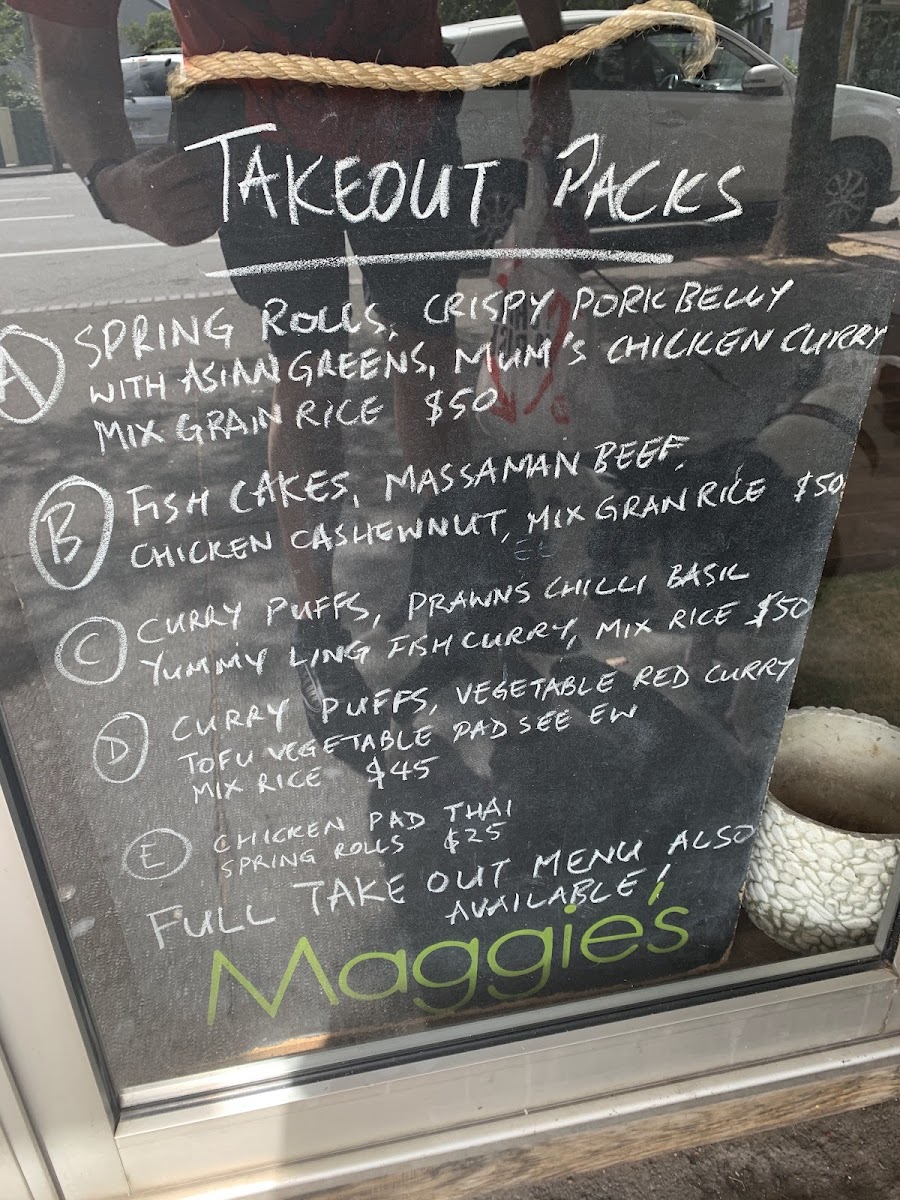 TAKEOUT PACKS
A SPRING ROLLS, CRISPY PORK BELLY
WITH ASIAN GREENS, MUM'S CHICKEN CURRY
MIX GRAIN RICE $50
B FISH CAKES, MASSAMAN BEEF,
CHICKEN CASHEWNUT, MIX GRAN RICE $50
C CURRY PUFFS, PRAWNS CHILLI BASIL
YUMMY LING FISH CURRY, MIX RICE $50
D CURRY PUFFS, VEGETABLE RED CURRY
TOFU VEGETABLE PAD SEE EW
MIX RICE $45
E CHICKEN PAD THAI
SPRING ROLLS $25
FULL TAKE OUT MENU ALSO
AVAILABLE!
Maggie's